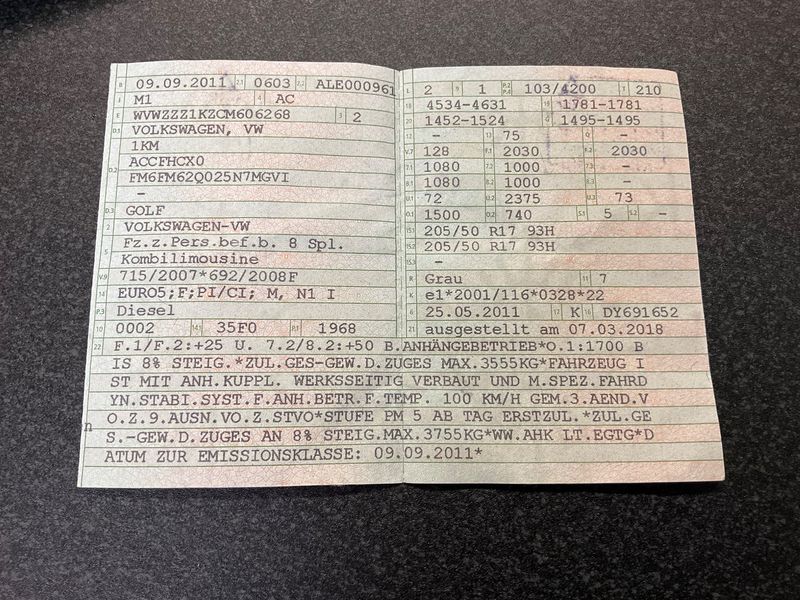 B 09.09.2011 2.1 0603 2.2 ALE000961
J M1 4 AC
E WVWZZZ1KZCM606268 3 2
D.1 VOLKSWAGEN, VW
1KM
D.2 ACCFHCX0
FM6FM62Q025N7MGVI
-
D.3 GOLF
2 VOLKSWAGEN-VW
5 Fz.z.Pers.bef.b. 8 Spl.
Kombilimousine
V.9 715/2007*692/2008F
14 EURO5;F;PI/CI; M, N1 I
P.3 Diesel
10 0002 14.1 35F0 P.1 1968
L 2 9 1 P.2 P.4 103/4200 T 210
18 4534-4631 19 1781-1781
20 1452-1524 G 1495-1495
12 - 13 75 Q -
V.7 128 F.1 2030 F.2 2030
7.1 1080 7.2 1000 7.3 -
8.1 1080 8.2 1000 8.3 -
U.1 72 U.2 2375 U.3 73
O.1 1500 O.2 740 S.1 5 S.2 -
15.1 205/50 R17 93H
15.2 205/50 R17 93H
15.3 -
R Grau 11 7
K e1*2001/116*0328*22
6 25.05.2011 17 K 16 DY691652
21 ausgestellt am 07.03.2018
22 F.1/F.2:+25 U. 7.2/8.2:+50 B.ANHÄNGEBETRIEB*O.1:1700 B
IS 8% STEIG.*ZUL.GES-GEW.D.ZUGES MAX.3555KG*FAHRZEUG I
ST MIT ANH.KUPPL. WERKSSEITIG VERBAUT UND M.SPEZ.FAHRD
YN.STABI.SYST.F.ANH.BETR.F.TEMP. 100 KM/H GEM.3.AEND.V
O.Z.9.AUSN.VO.Z.STVO*STUFE PM 5 AB TAG ERSTZUL.*ZUL.GE
n S.-GEW.D.ZUGES AN 8% STEIG.MAX.3755KG*WW.AHK LT.EGTG*D
ATUM ZUR EMISSIONSKLASSE: 09.09.2011*